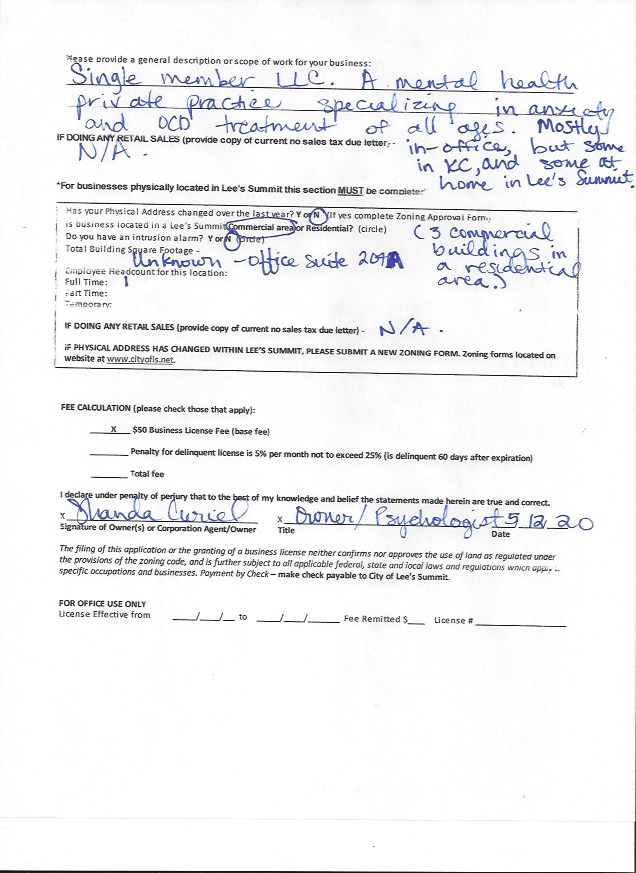 Please provide a general description or scope of work for your business:
Single member LLC. A mental health
private practice specializing in anxiety
and OCD treatment of all ages. Mostly
IF DOING ANY RETAIL SALES (provide copy of current no sales tax due letter) -
in-office, but some
N/A.
in KC, and some at
home in Lee's Summit.
*For businesses physically located in Lee's Summit this section MUST be complete
Has your Physical Address changed over the last year? Y or N (If yes complete Zoning Approval Form)
Is business located in a Lee's Summit Commercial area or Residential? (circle)
(3 commercial
buildings in
a residential
area.)
Do you have an intrusion alarm? Y or N (circle)
Total Building Square Footage -
Unknown - Office Suite 207A
Employee Headcount for this location:
Full Time: 1
Part Time:
Temporary:
IF DOING ANY RETAIL SALES (provide copy of current no sales tax due letter) - N/A.
IF PHYSICAL ADDRESS HAS CHANGED WITHIN LEE'S SUMMIT, PLEASE SUBMIT A NEW ZONING FORM. Zoning forms located on
website at www.cityofls.net.
FEE CALCULATION (please check those that apply):
X $50 Business License Fee (base fee)
Penalty for delinquent license is 5% per month not to exceed 25% (is delinquent 60 days after expiration)
Total fee
I declare under penalty of perjury that to the best of my knowledge and belief the statements made herein are true and correct.
x Shanda Curiel x Owner/Psychologist 5 12 20
Signature of Owner(s) or Corporation Agent/Owner Title Date
The filing of this application or the granting of a business license neither confirms nor approves the use of land as regulated under
the provisions of the zoning code, and is further subject to all applicable federal, state and local laws and regulations which apply
specific occupations and businesses. Payment by Check – make check payable to City of Lee's Summit.
FOR OFFICE USE ONLY
License Effective from ___/___/___ to ___/___/___ Fee Remitted $___ License # ___